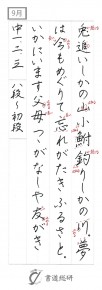 9月
兎追いしかの山小鮒釣りしかの川、夢
は今もめぐりて忘れがたきふるさと、
いかにいます父母つつがなしや友がき
中一、二、三 八段〜初段
書道総研